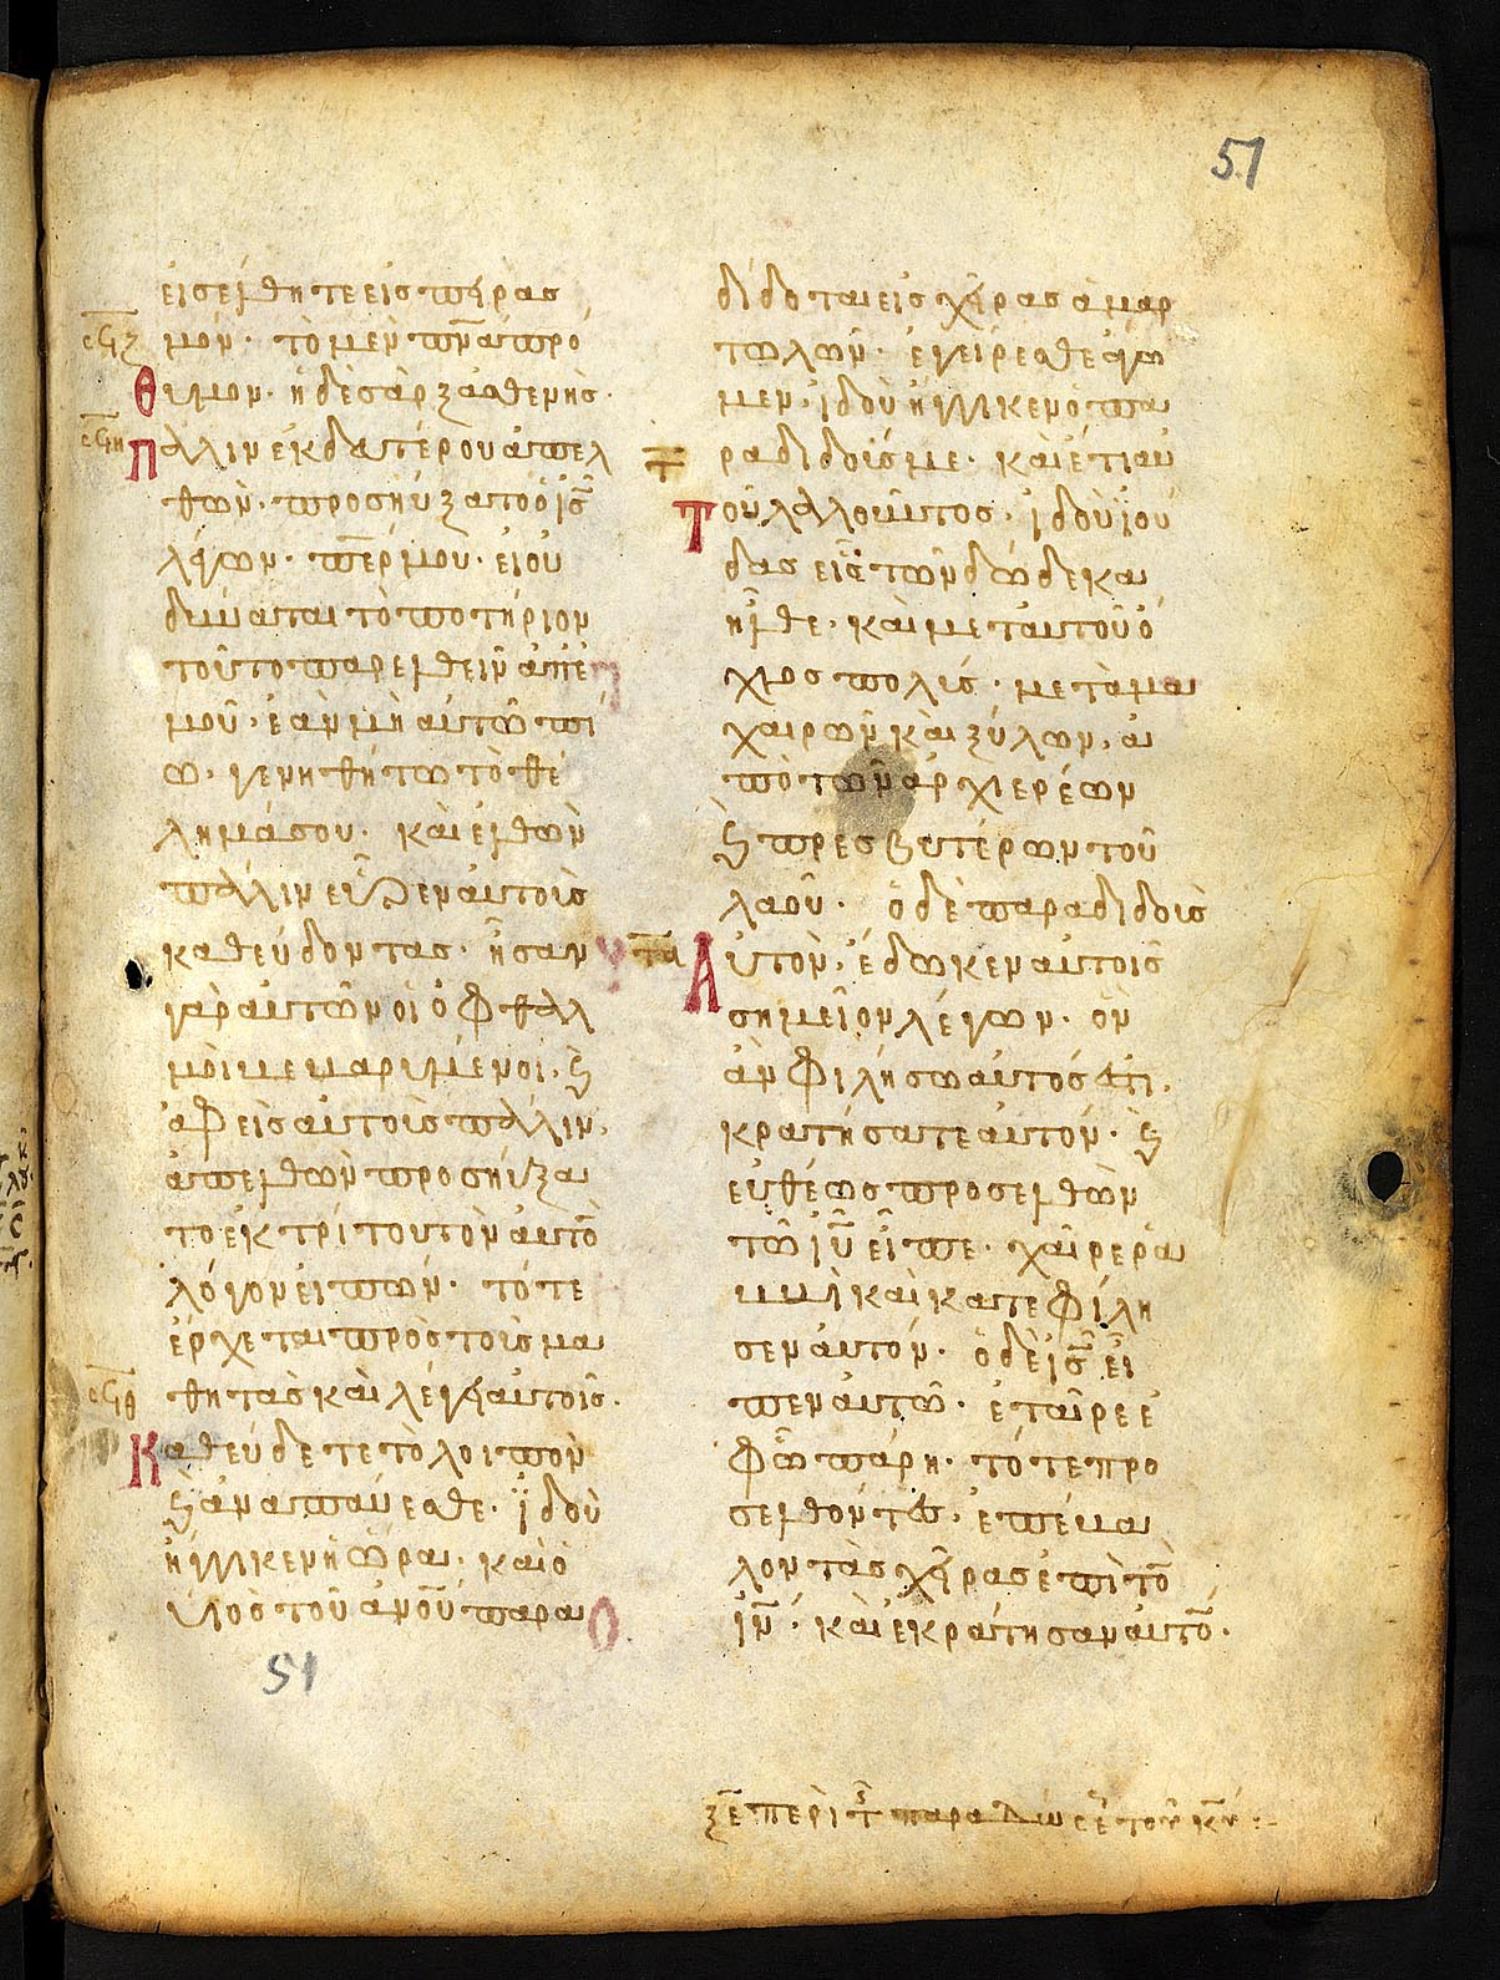 51
εἰσέλθητε εἰς πειρασ
σϟζ μόν· τὸ μὲν πνα πρό
θυμον· ἡ δὲ σὰρξ ἀσθενὴς·
σϟη Πάλιν ἐκ δευτέρου ἀπελ
θὼν· προσηύξατο ὁ ις
λέγων· περ μου· εἰ οὐ
δύναται τὸ ποτήριον
τοῦτο παρελθεῖν ἀπ ἐ
μοῦ, ἐὰν μὴ αὐτῶ πί
ω, γενηθήτω τὸ θέ
λημά σου· καὶ ἐλθὼν
πάλιν εὗρεν αὐτοὺς
καθεύδοντας· ἦσαν
γὰρ αὐτῶν οἱ ὀφθαλ
μοὶ βεβαρυμένοι, ϗ
ἀφεὶς αὐτοὺς πάλιν,
ἀπελθὼν προσηύξα
το ἐκ τρίτου τὸν αὐτὸ
λόγον εἰπών· τότε
ἔρχεται πρὸς τοὺς μα
θητὰς καὶ λέγει αὐτοῖς·
σϟθ Καθεύδετε τὸ λοιπὸν
ϗ ἀναπαύεσθε· ϊδοὺ
ἤγγικεν ἡ ὥρα, καὶ ὁ
υἱὸς τοῦ ανου παρα
51
δίδοται εἰς χεῖρας ἁμαρ
τωλῶν· ἐγείρεσθε ἄγω
μεν, ἰδοὺ ἤγγικεν ὁ πα
τ ραδιδούς με· καὶ ἔτι αὐ
Τοῦ λαλοῦντος, ἰδοὺ ϊού
δας εἷς τῶν δώδεκα
ἦλθε, καὶ μετ αὐτοῦ ὄ
χλος πολύς· μετὰ μα
χαιρῶν καὶ ξύλων, ἀ
πὸ τῶν ἀρχιερέων
ϗ πρεσβυτέρων τοῦ
λαοῦ· ὁ δὲ παραδιδοὺς
τα Αὐτὸν, ἔδωκεν αὐτοῖς
σημεῖον λέγων· ὃν
ἂν φιλήσω αὐτός ἐστι,
κρατήσατε αὐτόν· ϗ
εὐθέως προσελθὼν
τῶ ιυ εἶπε· χαῖρε ῥα
ββὶ καὶ κατεφίλη
σεν αὐτόν· ὁ δὲ ις εἶ
πεν αὐτῶ· ἑταῖρε ἐ
φ ὧ πάρει· τότε προ
σελθόντες, ἐπέβα
λον τὰς χεῖρας ἐπὶ τὸ
ιν, καὶ ἐκράτησαν αὐτό·
ξε περὶ τ παραδώσε τοῦ κυ: